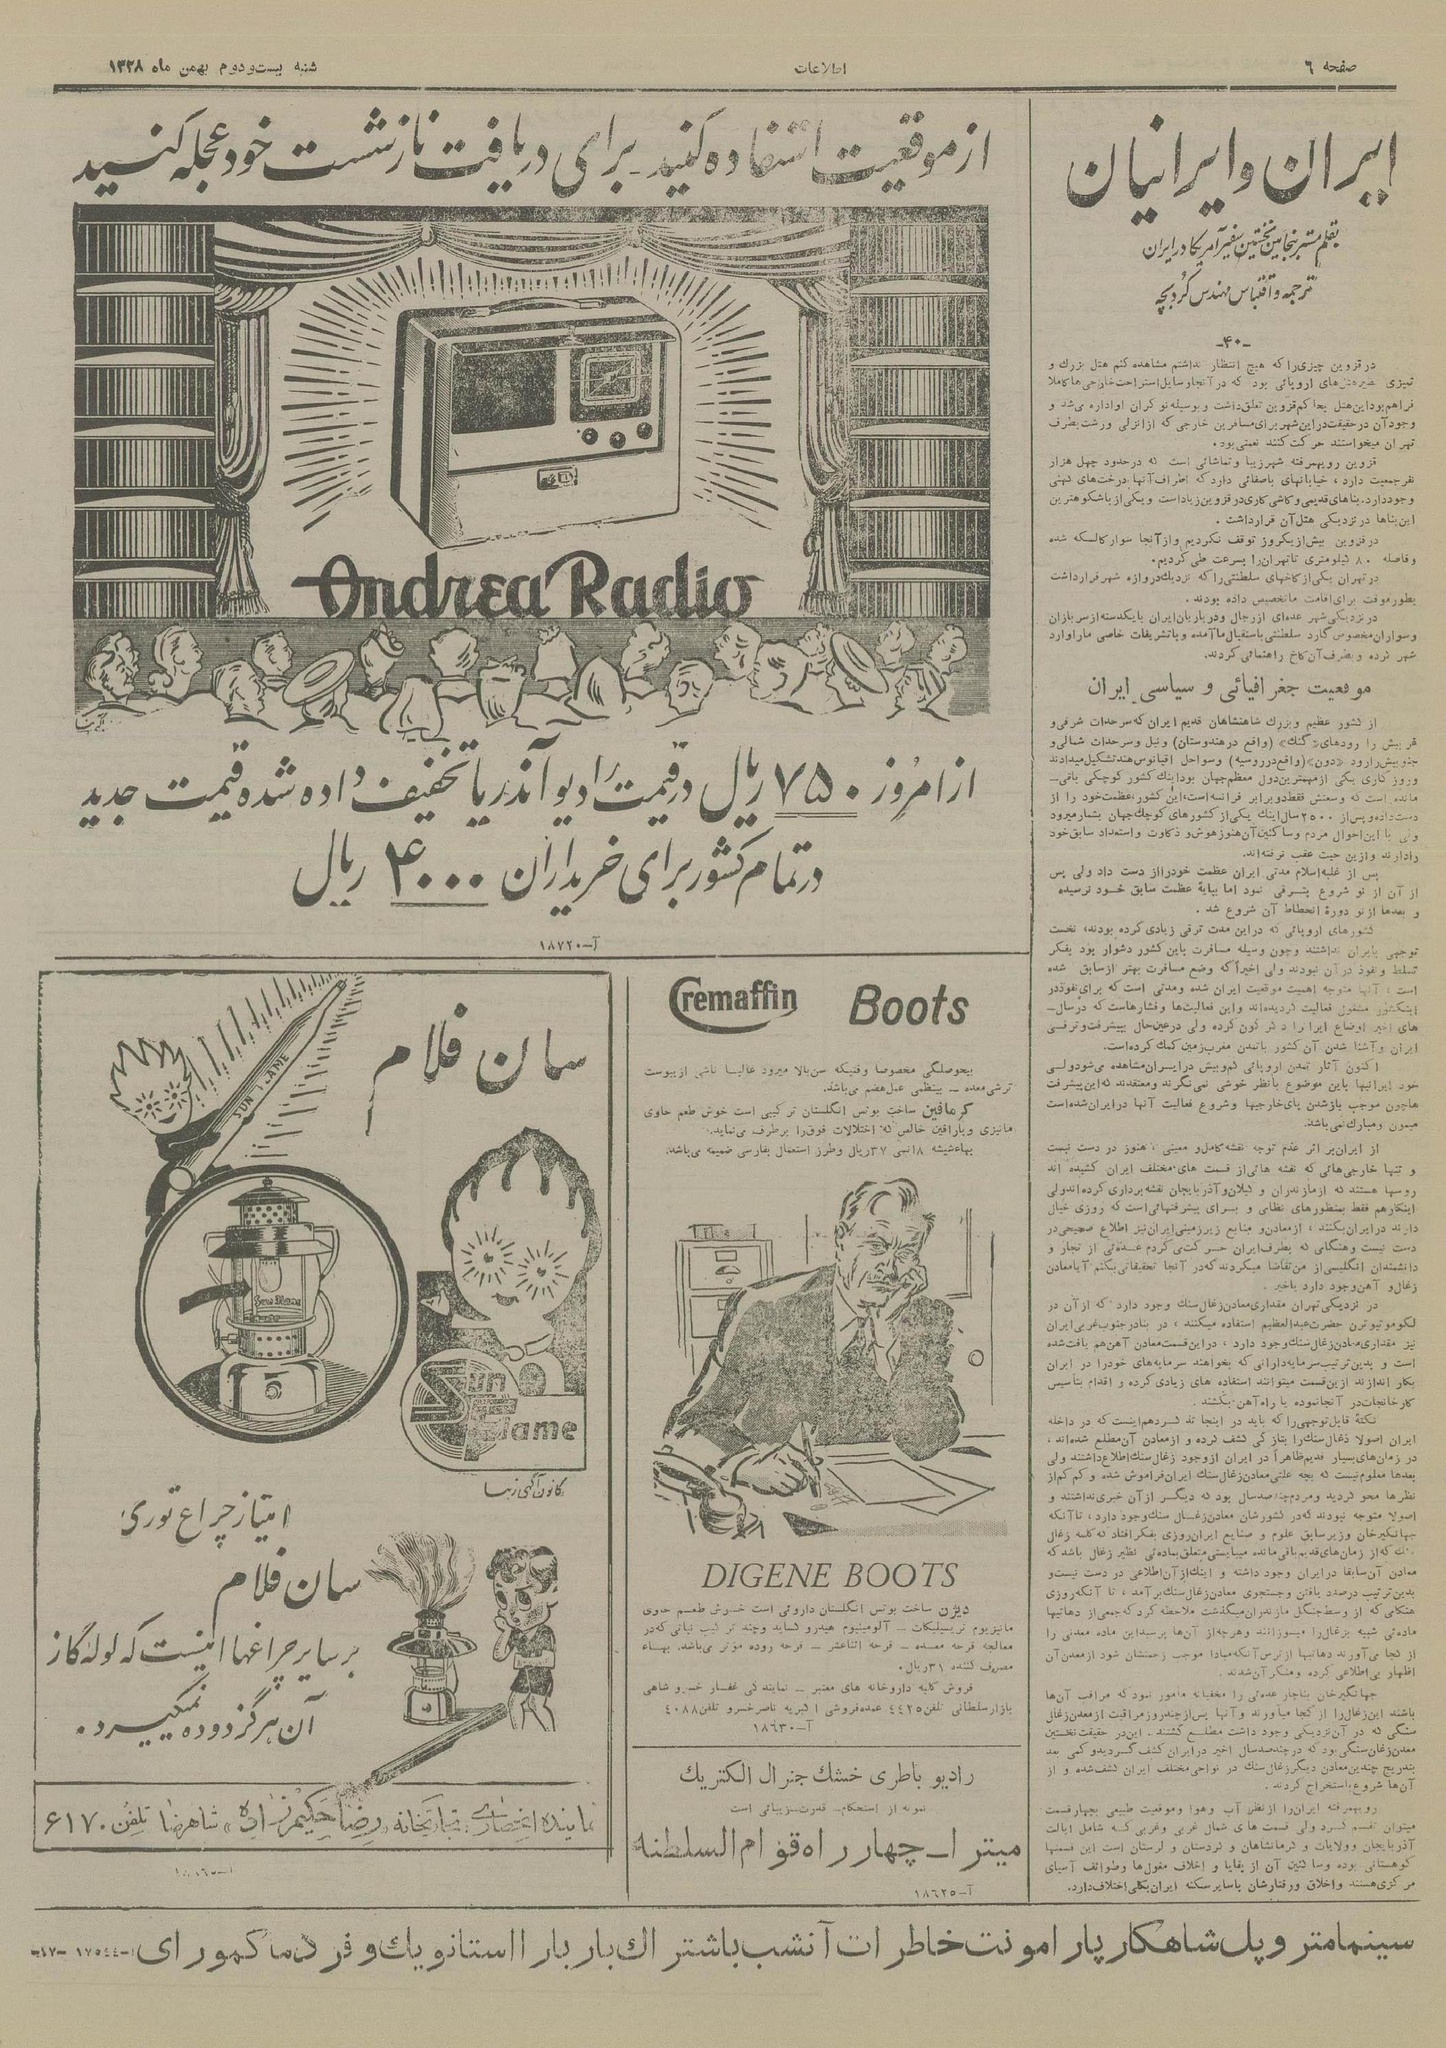 صفحه ٦
اطلاعات
شنبه بیست‌ودوم بهمن ماه ۱۳۲۸
ایران و ایرانیان
بقلم مستر بنجامین نخستین سفیر آمریکا در ایران
ترجمه و اقتباس مهندس کردبچه
-۴۰-
در قزوین چیزی را که هیچ انتظار نداشتم مشاهده کنم هتل بزرگ و
تمیزی نظیر هتل‌های اروپائی بود که در آنجا وسایل استراحت خارجی‌ها کاملا
فراهم بود این هتل بحاکم قزوین تعلق داشت و بوسیله نوکران او اداره می‌شد و
وجود آن در حقیقت در این شهر برای مسافرین خارجی که از انزلی و رشت بطرف
تهران میخواستند حرکت کنند نعمتی بود.
قزوین رویهمرفته شهر زیبا و تماشائی است که در حدود چهل هزار
نفر جمعیت دارد ، خیابانهای باصفائی دارد که اطراف آنها درخت‌های کهنی
وجود دارد. بناهای قدیمی و کاشی کاری در قزوین زیاد است و یکی از باشکوهترین
این بناها در نزدیکی هتل آن قرار داشت .
در قزوین بیش از یکروز توقف نکردیم و از آنجا سوار کالسکه شده
و فاصله ۸۰ کیلومتری تا تهران را بسرعت طی کردیم.
در تهران یکی از کاخهای سلطنتی را که نزدیک دروازه شهر قرار داشت
بطور موقت برای اقامت ما تخصیص داده بودند .
در نزدیکی شهر عده‌ای از رجال و درباریان ایران با یکدسته از سربازان
و سواران مخصوص گارد سلطنتی باستقبال ما آمده و با تشریفات خاصی ما را وارد
شهر کرده و بطرف آن کاخ راهنمائی کردند.
موقعیت جغرافیائی و سیاسی ایران
از کشور عظیم و بزرگ شاهنشاهان قدیم ایران که سرحدات شرقی و
غربیش را رودهای «گنگ» (واقع در هندوستان) و نیل و سرحدات شمالی و
جنوبیش را رود «دون» (واقع در روسیه) و سواحل اقیانوس هند تشکیل میدادند
و روزگاری یکی از مهمترین دول معظم جهان بود اینک کشور کوچکی باقی
مانده است که وسعتش فقط دو برابر فرانسه است، این کشور، عظمت خود را از
دست داده و پس از ۲۵۰۰ سال اینک یکی از کشورهای کوچک جهان بشمار میرود
ولی با این احوال مردم و ساکنین آن هنوز هوش و ذکاوت و استعداد سابق خود
را دارند و از این حیث عقب نرفته‌اند.
پس از غلبه اسلام مدتی ایران عظمت خود را از دست داد ولی پس
از آن از نو شروع بترقی نمود اما بپایهٔ عظمت سابق خود نرسیده
و بعدها از نو دورهٔ انحطاط آن شروع شد .
کشورهای اروپائی که در این مدت ترقی زیادی کرده بودند، نخست
توجهی بایران نداشتند و چون وسیله مسافرت باین کشور دشوار بود بفکر
تسلط و نفوذ در آن نبودند ولی اخیراً که وضع مسافرت بهتر از سابق شده
است ، آنها متوجه اهمیت موقعیت ایران شده و مدتی است که برای نفوذ در
اینکشور مشغول فعالیت گردیده‌اند و این فعالیت‌ها و فشارهاست که در سال‌
های اخیر اوضاع ایران را دگرگون کرده ولی در عین حال بپیشرفت و ترقی
ایران و آشنا شدن آن کشور با تمدن مغرب زمین کمک کرده است.
اکنون آثار تمدن اروپائی کم و بیش در ایران مشاهده می‌شود ولی
خود ایرانیها باین موضوع بانظر خوشی نمی‌نگرند و معتقدند که این پیشرفت
ها چون موجب باز شدن پای خارجیها و شروع فعالیت آنها در ایران شده است
میمون و مبارک نمی‌باشد.
از ایران بر اثر عدم توجه نقشه کامل و معینی ، هنوز در دست نیست
و تنها خارجی‌هائی که نقشه هائی از قسمت های مختلف ایران کشیده اند
روسها هستند که از مازندران و گیلان و آذربایجان نقشه برداری کرده‌اند ولی
اینکار هم فقط بمنظورهای نظامی و برای پیشرفتهائی است که روزی خیال
دارند در ایران بکنند ، از معادن و منابع زیرزمینی ایران نیز اطلاع صحیحی در
دست نیست و هنگامی که بطرف ایران حرکت می‌کردم عده‌ئی از تجار و
دانشمندان انگلیسی از من تقاضا میکردند که در آنجا تحقیقاتی بکنم آیا معادن
زغال و آهن وجود دارد یا خیر.
در نزدیکی تهران مقداری معادن زغال سنگ وجود دارد که از آن در
لکوموتیو ترن حضرت عبدالعظیم استفاده میکنند ، در بنادر جنوب غربی ایران
نیز مقداری معادن زغال سنگ وجود دارد ، در این قسمت معادن آهن هم یافت شده
است و بدین ترتیب سرمایه‌دارانی که بخواهند سرمایه‌های خود را در ایران
بکار اندازند از این قسمت میتوانند استفاده های زیادی کرده و اقدام بتأسیس
کارخانجات در آنجا نموده یا راه آهن بکشند .
نکتهٔ قابل توجهی را که باید در اینجا تذکر دهم اینست که در داخله
ایران اصولا ذغال سنگ را بتازگی کشف کرده و از معادن آن مطلع شده‌اند ،
در زمان‌های بسیار قدیم ظاهراً در ایران از وجود زغال سنگ اطلاع داشتند ولی
بعدها معلوم نیست که بچه علتی معادن زغال سنگ ایران فراموش شده و کم کم از
نظرها محو گردید و مردم چند صد سال بود که دیگر از آن خبری نداشتند و
اصولا متوجه نبودند که در کشورشان معادن زغال سنگ وجود دارد ، تا آنکه
جهانگیرخان وزیر سابق علوم و صنایع ایران روزی بفکر افتاد که کلمه زغال
سنگ که از زمان‌های قدیم باقی مانده میبایستی متعلق بماده‌ئی نظیر زغال باشد که
معادن آن سابقا در ایران وجود داشته و اینک از آن اطلاعی در دست نیست و
بدین ترتیب درصدد یافتن و جستجوی معادن زغال سنگ برآمد ، تا آنکه روزی
هنگامی که از وسط جنگل مازندران میگذشت ملاحظه کرد که جمعی از دهاتیها
ماده‌ئی شبیه بزغال را میسوزانند و هرچه از آن‌ها پرسید این ماده معدنی را
از کجا می‌آورند دهاتیها از ترس آنکه مبادا موجب زحمتشان شود از معدن آن
اظهار بی‌اطلاعی کرده و منکر آن شدند .
جهانگیرخان بناچار عده‌ئی را مخفیانه مأمور نمود که مراقب آن‌ها
باشند این زغال را از کجا میآورند و آنها پس از چند روز مراقبت از معدن زغال
سنگی که در آن نزدیکی وجود داشت مطلع گشتند . این در حقیقت نخستین
معدن زغال سنگی بود که در چند صد سال اخیر در ایران کشف گردید و کمی بعد
بتدریج چندین معادن دیگر زغال سنگ در نواحی مختلف ایران کشف شده و از
آن‌ها شروع باستخراج کردند .
رویهمرفته ایران را از نظر آب و هوا و موقعیت طبیعی بچهار قسمت
میتوان تقسیم کرد ولی قسمت های شمال غربی و غربی که شامل ایالت
آذربایجان و ولایات و کرمانشاهان و کردستان و لرستان است این قسمتها
کوهستانی بوده و ساکنین آن از بقایا و اخلاف مغول‌ها و طوائف آسیای
مرکزی هستند و اخلاق و رفتارشان با سایر سکنه ایران بکلی اختلاف دارد.
از موقعیت استفاده کنید - برای دریافت نازشست خود عجله کنید
Andrea Radio
از امروز ۷۵۰ ریال در قیمت رادیو آندریا تخفیف داده شده قیمت جدید
در تمام کشور برای خریداران ۴۰۰۰ ریال
آ-۱۸۷۲۰
Cremaffin Boots
بیحوصلگی مخصوصا وقتیکه سن بالا میرود غالبا ناشی از یبوست
ترشی معده - بینظمی عمل هضم می‌باشد.
کرمافین ساخت بوتس انگلستان ترکیبی است خوش طعم حاوی
مانیزی و پارافین خالص که اختلالات فوق را برطرف می‌نماید.
بهاء شیشه ۱۸ انسی ۳۷ ریال و طرز استعمال بفارسی ضمیمه می‌باشد.
DIGENE BOOTS
دیژن ساخت بوتس انگلستان داروئی است خوش طعم حاوی
مانیزیوم تریسیلیکات - آلومینیوم هیدروکساید و چند ترکیب نباتی که در
معالجه قرحه معده - قرحه اثناعشر - قرحه روده مؤثر می‌باشد. بهاء
مصرف کننده ۳۱ ریال.
فروش کلیه داروخانه های معتبر - نمایندگی غفار خسروشاهی
بازار سلطانی تلفن ۴۴۲۵ عمده فروشی اکبریه ناصرخسرو تلفن ۴۰۸۸
آ-۱۸۶۳۰
رادیو باطری خشک جنرال الکتریک
نمونه از استحکام - قدرت - زیبائی است
میترا - چهارراه قوام السلطنه
آ-۱۸۶۲۵
سان فلام
SUN FLAME
Sun Flame
Sun Flame
کانون آگهی زیبا
امتیاز چراغ توری
سان فلام
بر سایر چراغها اینست که لوله گاز
آن هرگز دوده نمیگیرد.
نماینده انحصاری: تجارتخانه «رضا حکیم‌زاده» شاهرضا تلفن ۶۱۷۰
سینما متروپل شاهکار پارامونت خاطرات آنشب باشتراک باربارا استانویک و فردماک‌مورای
آ-۱۷۵٤٤